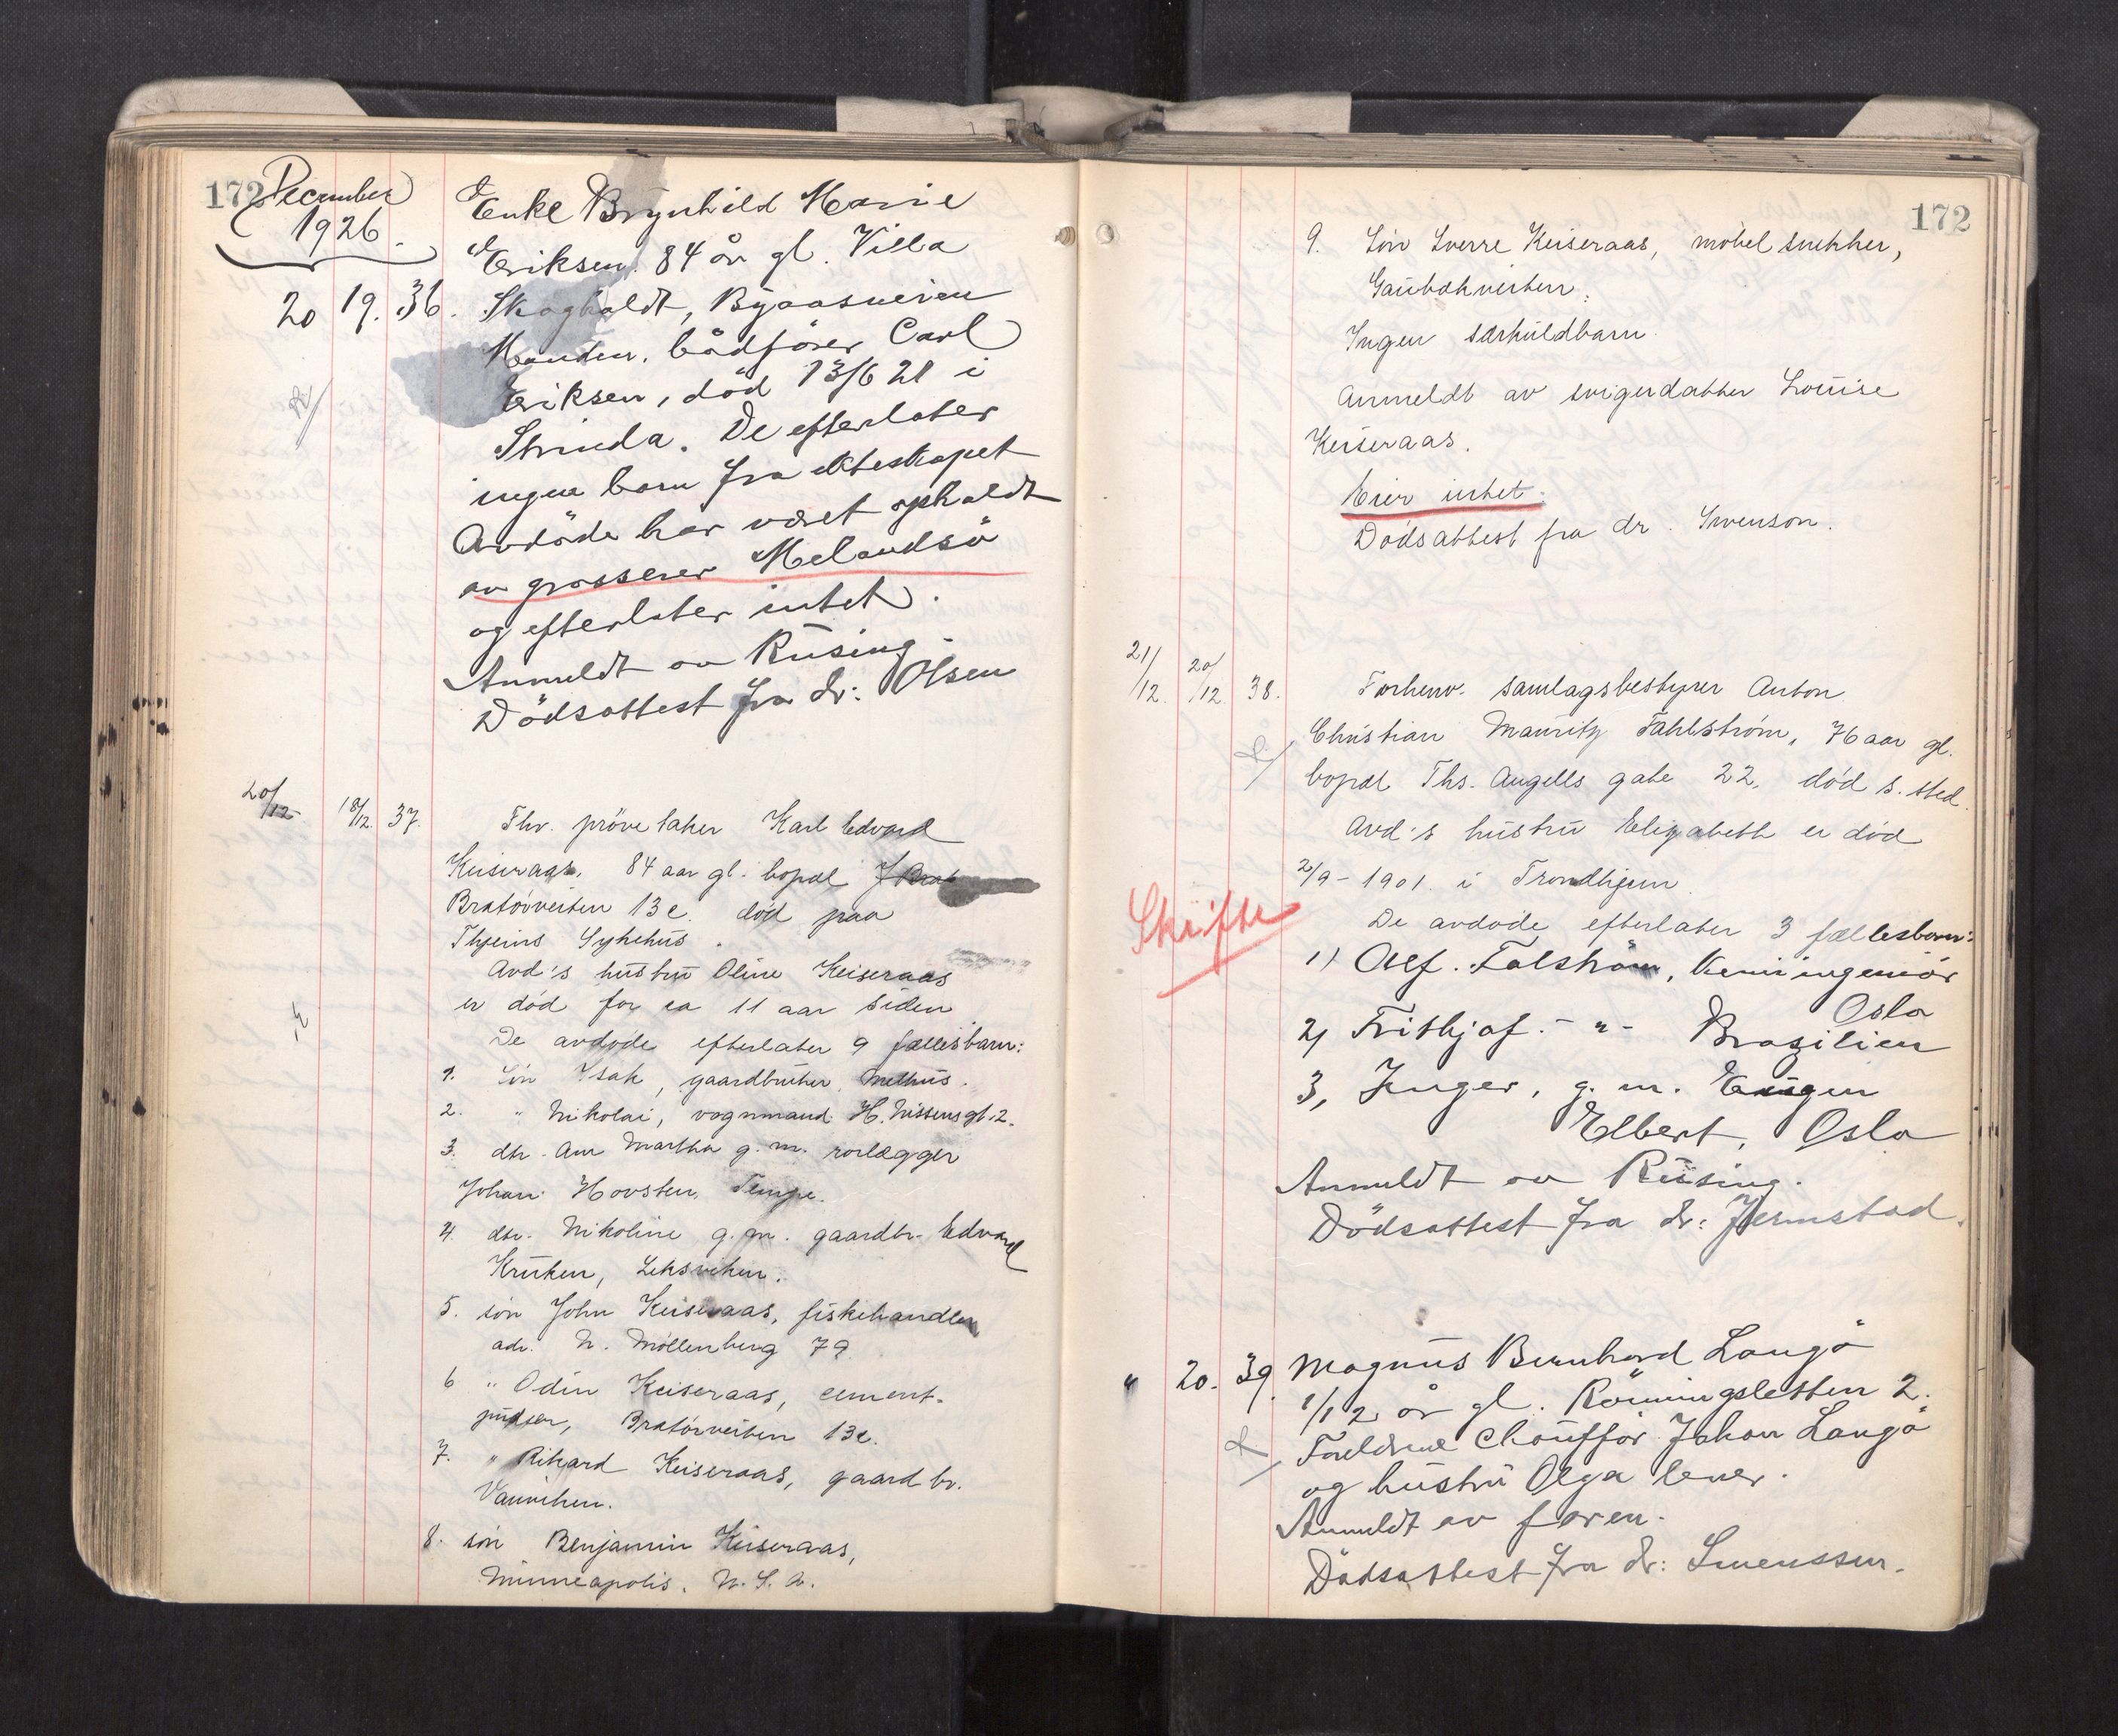 172
December
1926.
20 19. 36.
Enke Brynhild Marie
Eriksen. 84 år gl. Villa
Skogholdt, Byaasveien
Manden, bådförer Carl
Eriksen, död 13/6 21 i
Strinda. De efterlater
ingen barn fra ekteskapet
Avdöde har været opholdt
av grosserer Melandsö
og efterlater intet.
Anmeldt av Rüsing.
Dödsattest fra dr: Olsen
20/12 18/12. 37.
Fhv. prövetaker Karl Edvard
Keiseraas, 84 aar gl. bopæl
Bratörveiten 13c. död paa
Thjems Sykehus.
Avd's hustru Oline Keiseraas
er död for ca 11 aar siden
De avdöde efterlater 9 fællesbarn:
1. Sön Isak, gaardbruker, Melhus.
2. " Nikolai, vognmand H. Nissensgt. 2.
3. dtr. Ane Martha g. m. rörlægger
Johan Hovsten, Tempe.
4. dtr. Nikoline g. m. gaardbr. Edvard
Kruken, Leksviken.
5. sön John Keiseraas, fiskehandler
adr. N. Möllenberg 79
6 " Odin Keiseraas, cement-
pudser, Bratörveiten 13c.
7. " Rikard Keiseraas, gaardbr.
Vanviken.
8. sön Benjamin Keiseraas,
Minneapolis. U. S. A.
172
9. Sön Sverre Keiseraas, möbelsnekker,
Gaubækveiten.
Ingen særkuldbarn.
Anmeldt av svigerdatter Louise
Keiseraas.
Eier intet.
Dödsattest fra dr. Svenson.
21/12. 20/12. 38.
Forhenv. samlagsbestyrer Anton
Christian Mauritz Fahlström, 76 aar gl.
bopæl Ths. Angells gate 22, död s. sted.
Avd's hustru Elizabeth er död
2/9 - 1901. i Trondhjem.
De avdöde efterlater 3 fællesbarn:
Skifte
1) Alf. Falström, Kemiingeniör
Oslo
2) Fritjof. - " - Brasilien
3, Inger, g. m. Eugen
Elbert, Oslo
Anmeldt av Rüsing.
Dödsattest fra dr: Jermstad.
" 20. 39.
Magnus Bernhard Langö
1/12 år gl. Rönningsletten 2.
Foreldrene chaufför Johan Langö
og hustru Olga lever.
Anmeldt av faren.
Dödsattest fra dr: Svenssen.